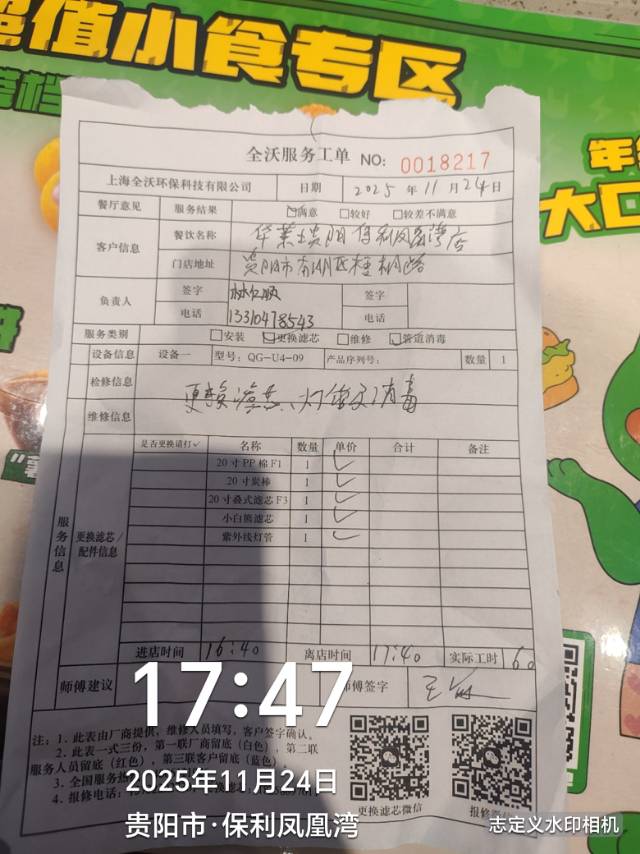 超值小食专区
全沃服务工单 NO: 0018217
上海全沃环保科技有限公司 日期 2025 年 11 月 24 日
餐厅意见 服务结果 ☑满意 □较好 □较差不满意
客户信息 餐饮名称 华莱士贵阳保利凤凰湾店
门店地址 贵阳市南明区桂桐路
负责人 签字 签字
电话 13310478543 电话
服务类别 □安装 ☑更换滤芯 □维修 ☑管道消毒
设备信息 设备一 型号: QG-U4-09 产品序列号: 数量 1
检修信息
更换滤芯、灯管及消毒
维修信息
服务信息
更换滤芯/配件信息
是否更换请打✓ 名称 数量 单价 合计 备注
20寸PP棉F1 1 ✓
20寸炭棒 1 ✓
20寸叠式滤芯F3 1 ✓
小白熊滤芯 1 ✓
紫外线灯管 1 ✓
进店时间 16:40 离店时间 17:40 实际工时 60
师傅建议 师傅签字
17:47
注: 1. 此表由厂商提供, 维修人员填写, 客户签字确认。
2. 此表一式三份, 第一联厂商留底 (白色), 第二联
服务人员留底 (红色), 第三联客户留底 (蓝色)。
3. 全国服务热
4. 报修电话:
更换滤芯微信
报修
2025年11月24日
贵阳市·保利凤凰湾
志定义水印相机
年
大口